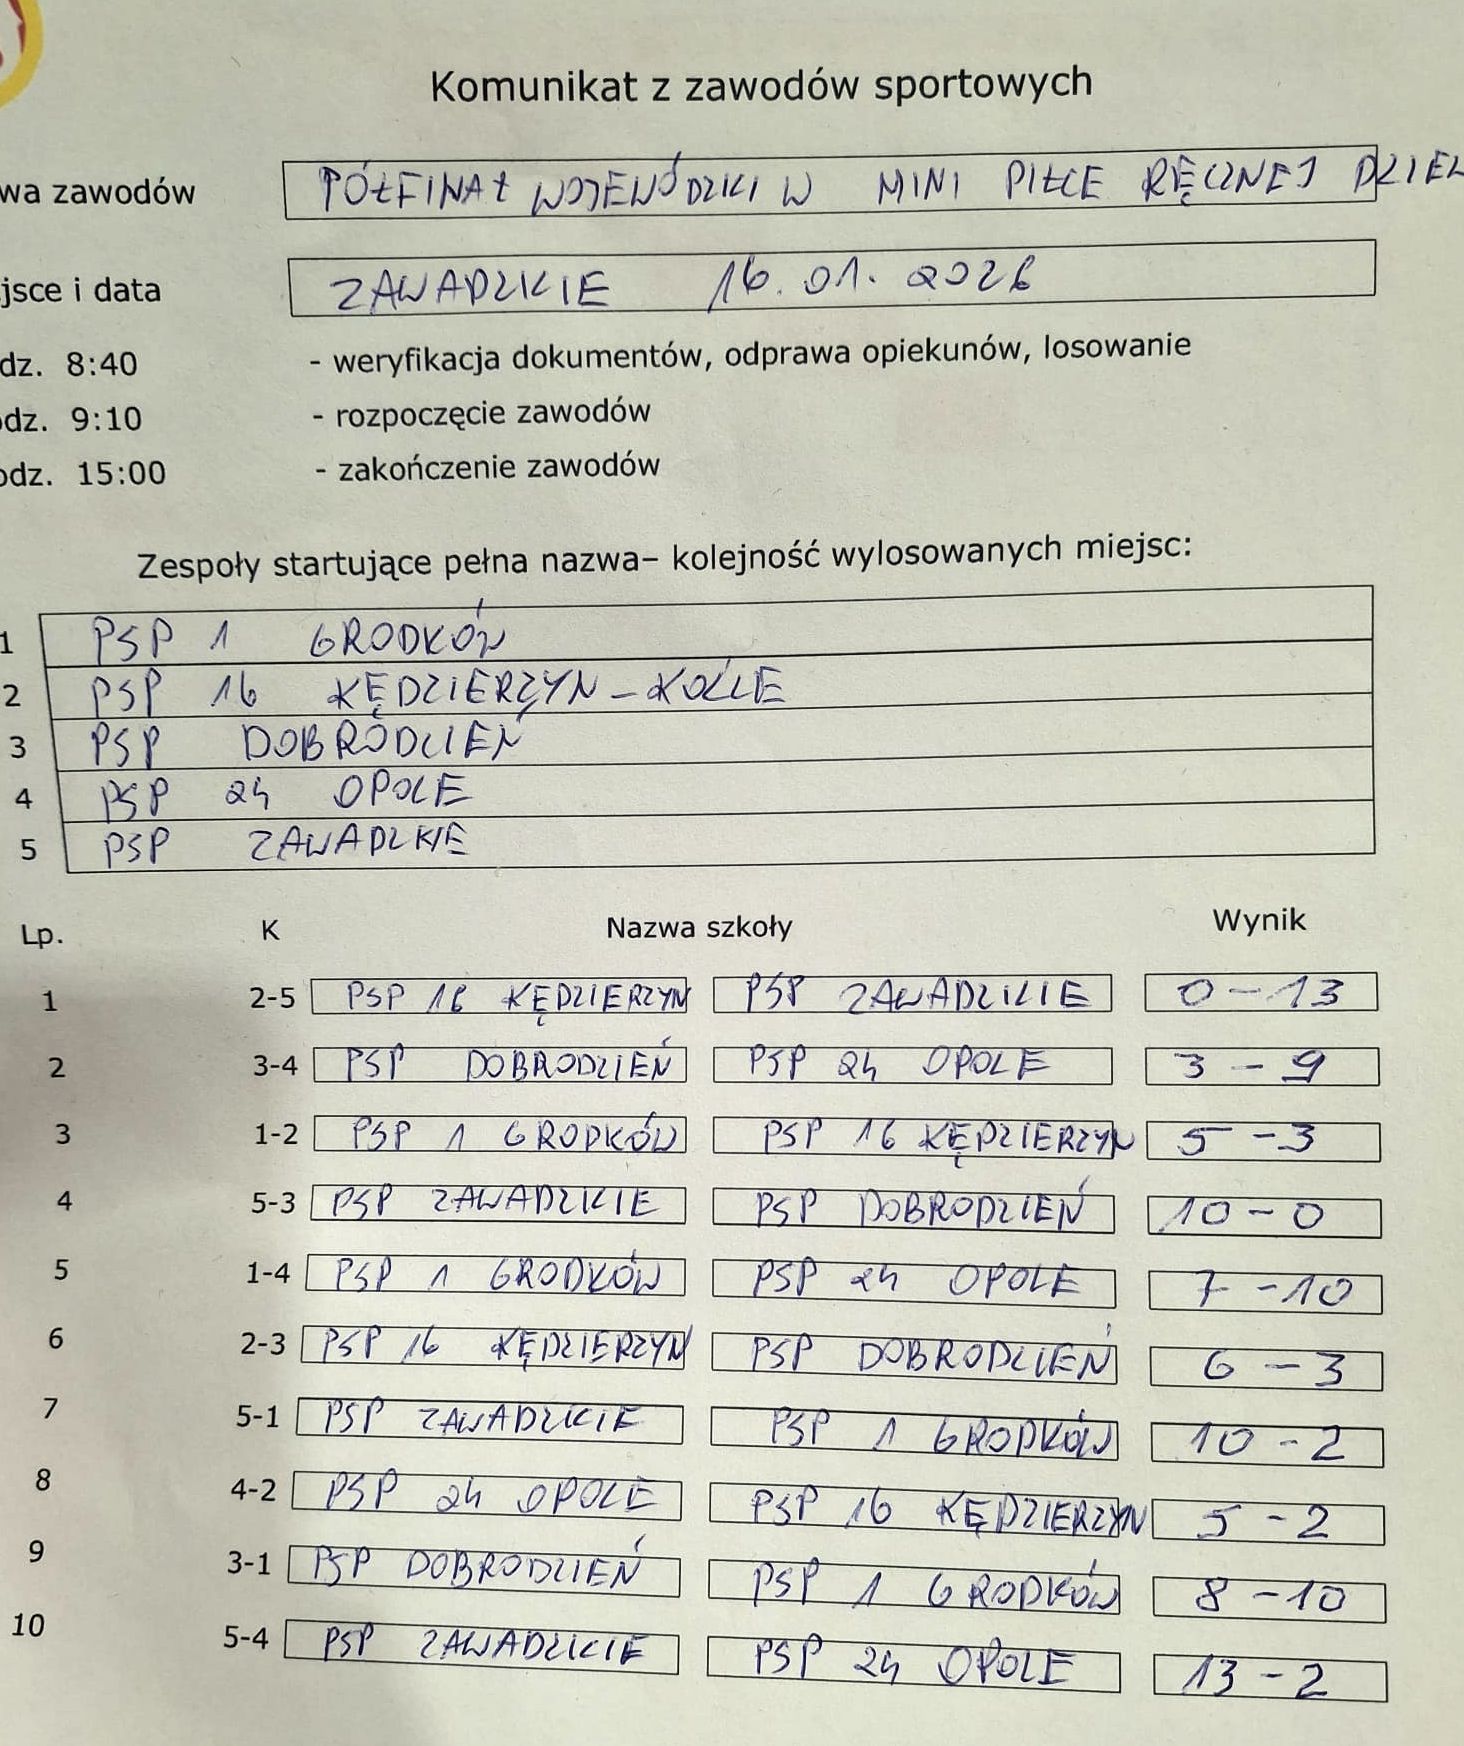 Komunikat z zawodów sportowych
wa zawodów PÓŁFINAŁ WOJEWÓDZKI W MINI PIŁCE RĘCZNEJ DZIEW
jsce i data ZAWADZKIE 16.01.2026
dz. 8:40 - weryfikacja dokumentów, odprawa opiekunów, losowanie
odz. 9:10 - rozpoczęcie zawodów
odz. 15:00 - zakończenie zawodów
Zespoły startujące pełna nazwa– kolejność wylosowanych miejsc:
1 PSP 1 GRODKÓW
2 PSP 16 KĘDZIERZYN-KOŹLE
3 PSP DOBRODZIEŃ
4 PSP 24 OPOLE
5 PSP ZAWADZKIE
Lp. K Nazwa szkoły Wynik
1 2-5 PSP 16 KĘDZIERZYN PSP ZAWADZKIE 0-13
2 3-4 PSP DOBRODZIEŃ PSP 24 OPOLE 3-9
3 1-2 PSP 1 GRODKÓW PSP 16 KĘDZIERZYN 5-3
4 5-3 PSP ZAWADZKIE PSP DOBRODZIEŃ 10-0
5 1-4 PSP 1 GRODKÓW PSP 24 OPOLE 7-10
6 2-3 PSP 16 KĘDZIERZYN PSP DOBRODZIEŃ 6-3
7 5-1 PSP ZAWADZKIE PSP 1 GRODKÓW 10-2
8 4-2 PSP 24 OPOLE PSP 16 KĘDZIERZYN 5-2
9 3-1 PSP DOBRODZIEŃ PSP 1 GRODKÓW 8-10
10 5-4 PSP ZAWADZKIE PSP 24 OPOLE 13-2